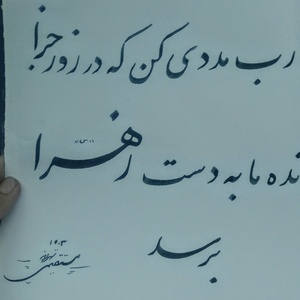 رب مددی کن که در روز جزا
نده ما به دست زهرا
برسد
۱۴۰۳